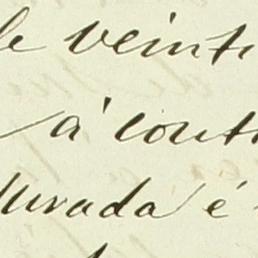 de veinti
á cont
Jurada é